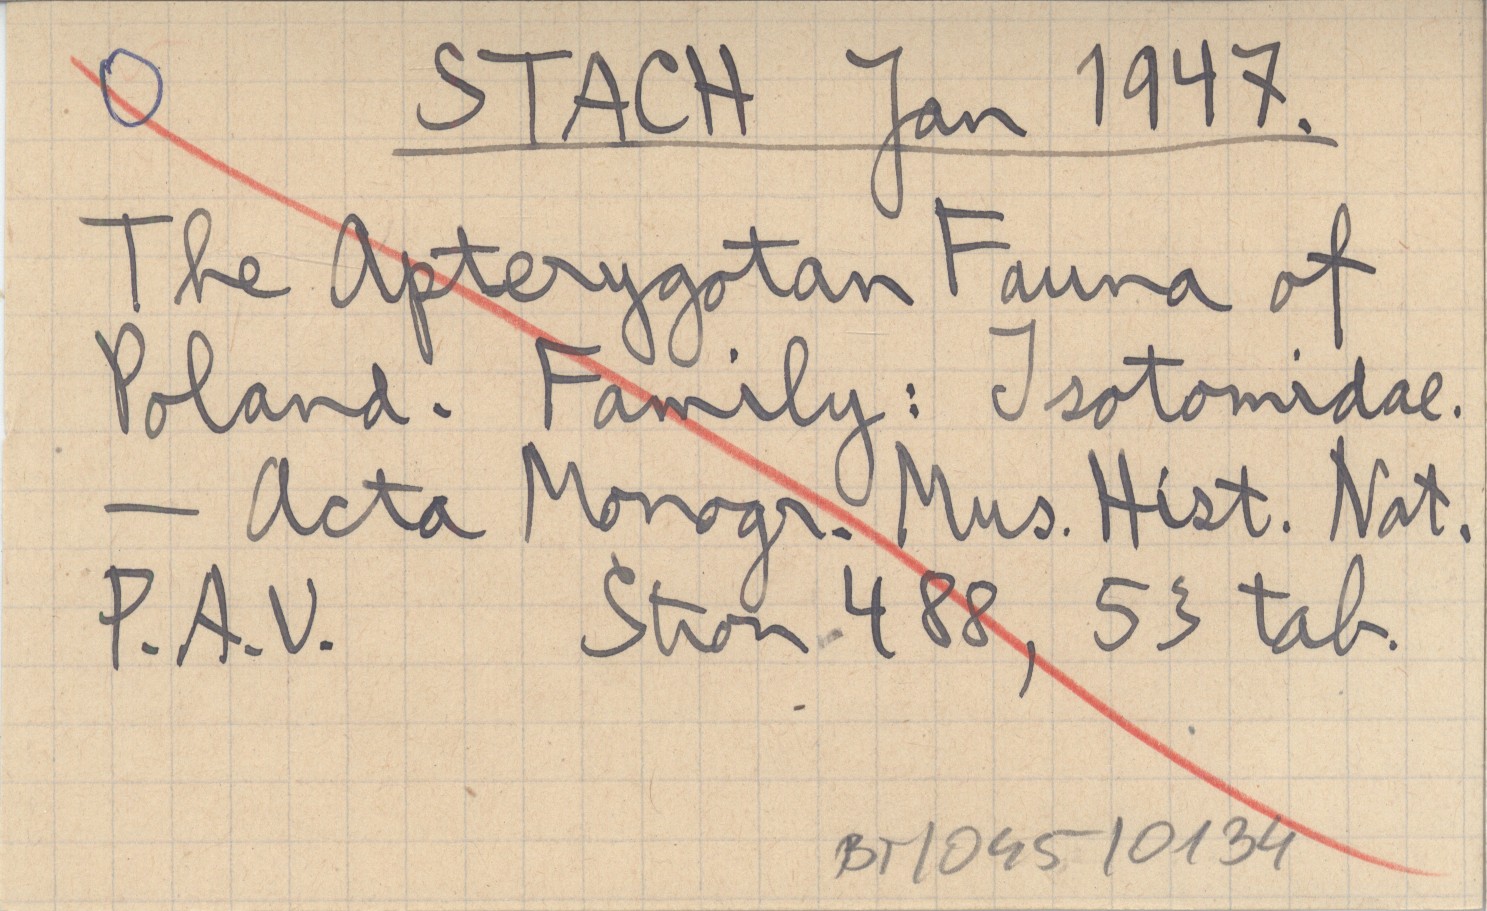 O
STACH Jan 1947.
The Apterygotan Fauna of
Poland. Family: Isotomidae.
— Acta Monogr. Mus. Hist. Nat.
P.A.V. Stron 488, 53 tab.
BT/045/0134